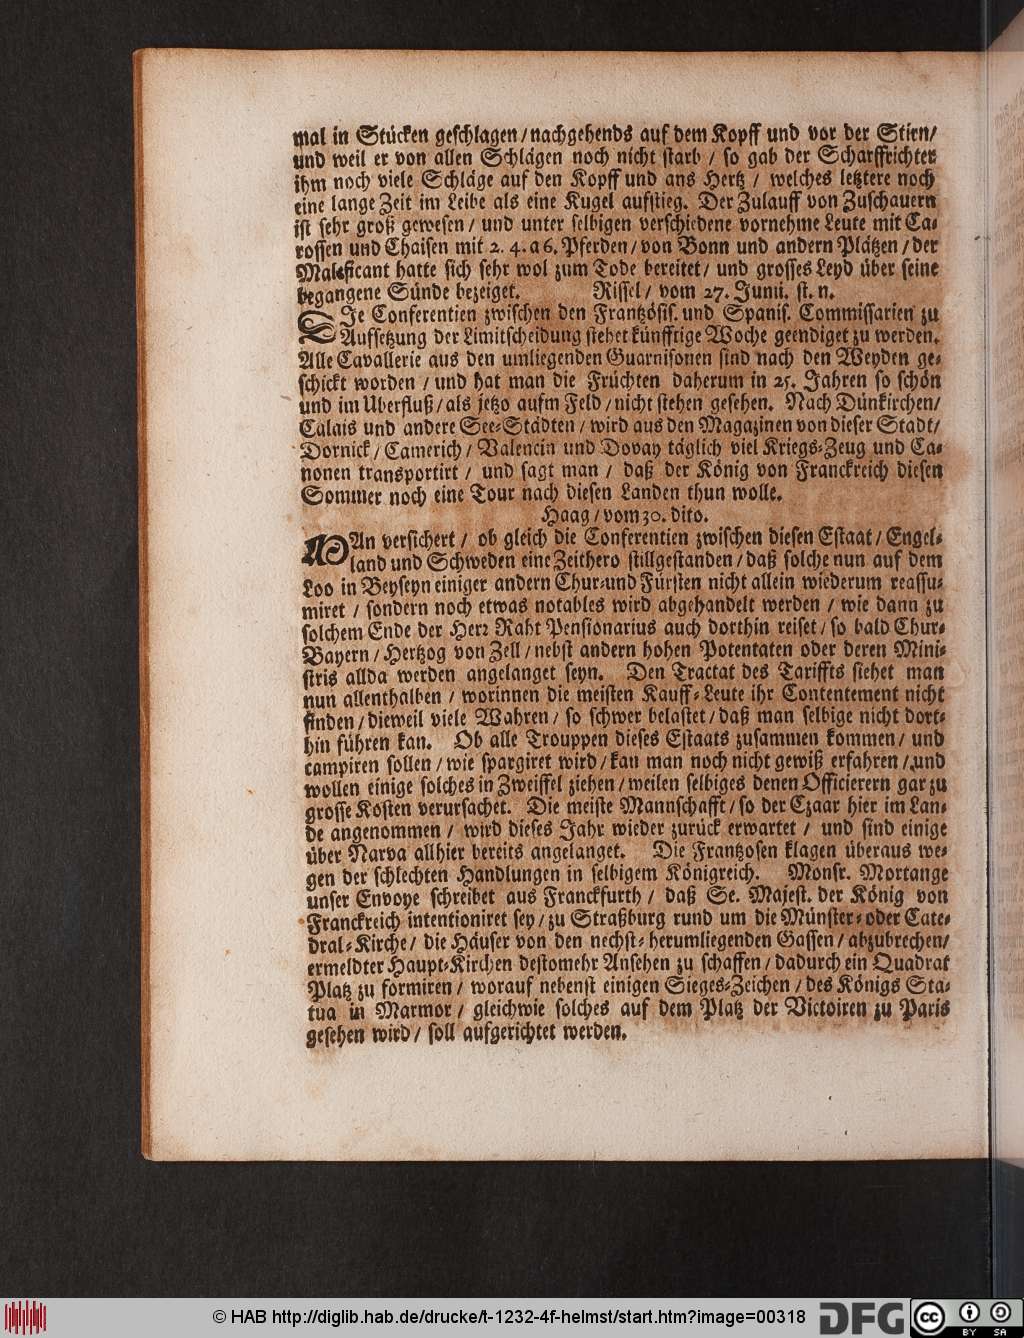 mal in Stücken geschlagen / nachgehends auf dem Kopff und vor der Stirn /
und weil er von allen Schlägen noch nicht starb / so gab der Scharffrichter
ihm noch viele Schläge auf den Kopff und ans Hertz / welches letztere noch
eine lange Zeit im Leibe als eine Kugel aufstieg. Der Zulauff von Zuschauern
ist sehr groß gewesen / und unter selbigen verschiedene vornehme Leute mit Ca-
rossen und Chaisen mit 2. 4. a 6. Pferden / von Bonn und andern Plätzen / der
Maleficant hatte sich sehr wol zum Tode bereitet / und grosses Leyd über seine
begangene Sünde bezeiget. Rissel / vom 27. Junii. st. n.
DIe Conferentien zwischen den Frantzösis. und Spanis. Commissarien zu
Aufsetzung der Limitscheidung stehet künfftige Woche geendiget zu werden.
Alle Cavallerie aus den umliegenden Guarnisonen sind nach den Weyden ge-
schickt worden / und hat man die Früchten daherum in 25. Jahren so schön
und im Uberfluß / als jetzo aufm Feld / nicht stehen gesehen. Nach Dünkirchen /
Calais und andere See-Städten / wird aus den Magazinen von dieser Stadt /
Dornick / Camerich / Valencin und Dovay täglich viel Kriegs-Zeug und Ca-
nonen transportirt / und sagt man / daß der König von Franckreich diesen
Sommer noch eine Tour nach diesen Landen thun wolle.
Haag / vom 30. dito.
MAn versichert / ob gleich die Conferentien zwischen diesen Estaat / Engel-
land und Schweden eine Zeithero stillgestanden / daß solche nun auf dem
Loo in Beyseyn einiger andern Chur-und Fürsten nicht allein wiederum reassu-
miret / sondern noch etwas notables wird abgehandelt werden / wie dann zu
solchem Ende der Herr Raht Pensionarius auch dorthin reiset / so bald Chur-
Bayern / Hertzog von Zell / nebst andern hohen Potentaten oder deren Mini-
stris allda werden angelanget seyn. Den Tractat des Tariffts siehet man
nun allenthalben / worinnen die meisten Kauff-Leute ihr Contentement nicht
finden / dieweil viele Wahren / so schwer belastet / daß man selbige nicht dort-
hin führen kan. Ob alle Trouppen dieses Estaats zusammen kommen / und
campiren sollen / wie spargiret wird / kan man noch nicht gewiß erfahren / und
wollen einige solches in Zweiffel ziehen / weilen selbiges denen Officierern gar zu
grosse Kosten verursachet. Die meiste Mannschafft / so der Czaar hier im Lan-
de angenommen / wird dieses Jahr wieder zurück erwartet / und sind einige
über Narva allhier bereits angelanget. Die Frantzosen klagen überaus we-
gen der schlechten Handlungen in selbigem Königreich. Monsr. Mortange
unser Envoye schreibet aus Franckfurth / daß Se. Majest. der König von
Franckreich intentioniret sey / zu Straßburg rund um die Münster- oder Cate-
dral-Kirche / die Häuser von den nechst-herumliegenden Gassen / abzubrechen /
ermeldter Haupt-Kirchen destomehr Ansehen zu schaffen / dadurch ein Quadrat
Platz zu formiren / worauf nebenst einigen Sieges-Zeichen / des Königs Sta-
tua in Marmor / gleichwie solches auf dem Platz der Victoiren zu Paris
gesehen wird / soll aufgerichtet werden.
© HAB http://diglib.hab.de/drucke/t-1232-4f-helmst/start.htm?image=00318
DFG
cc BY SA